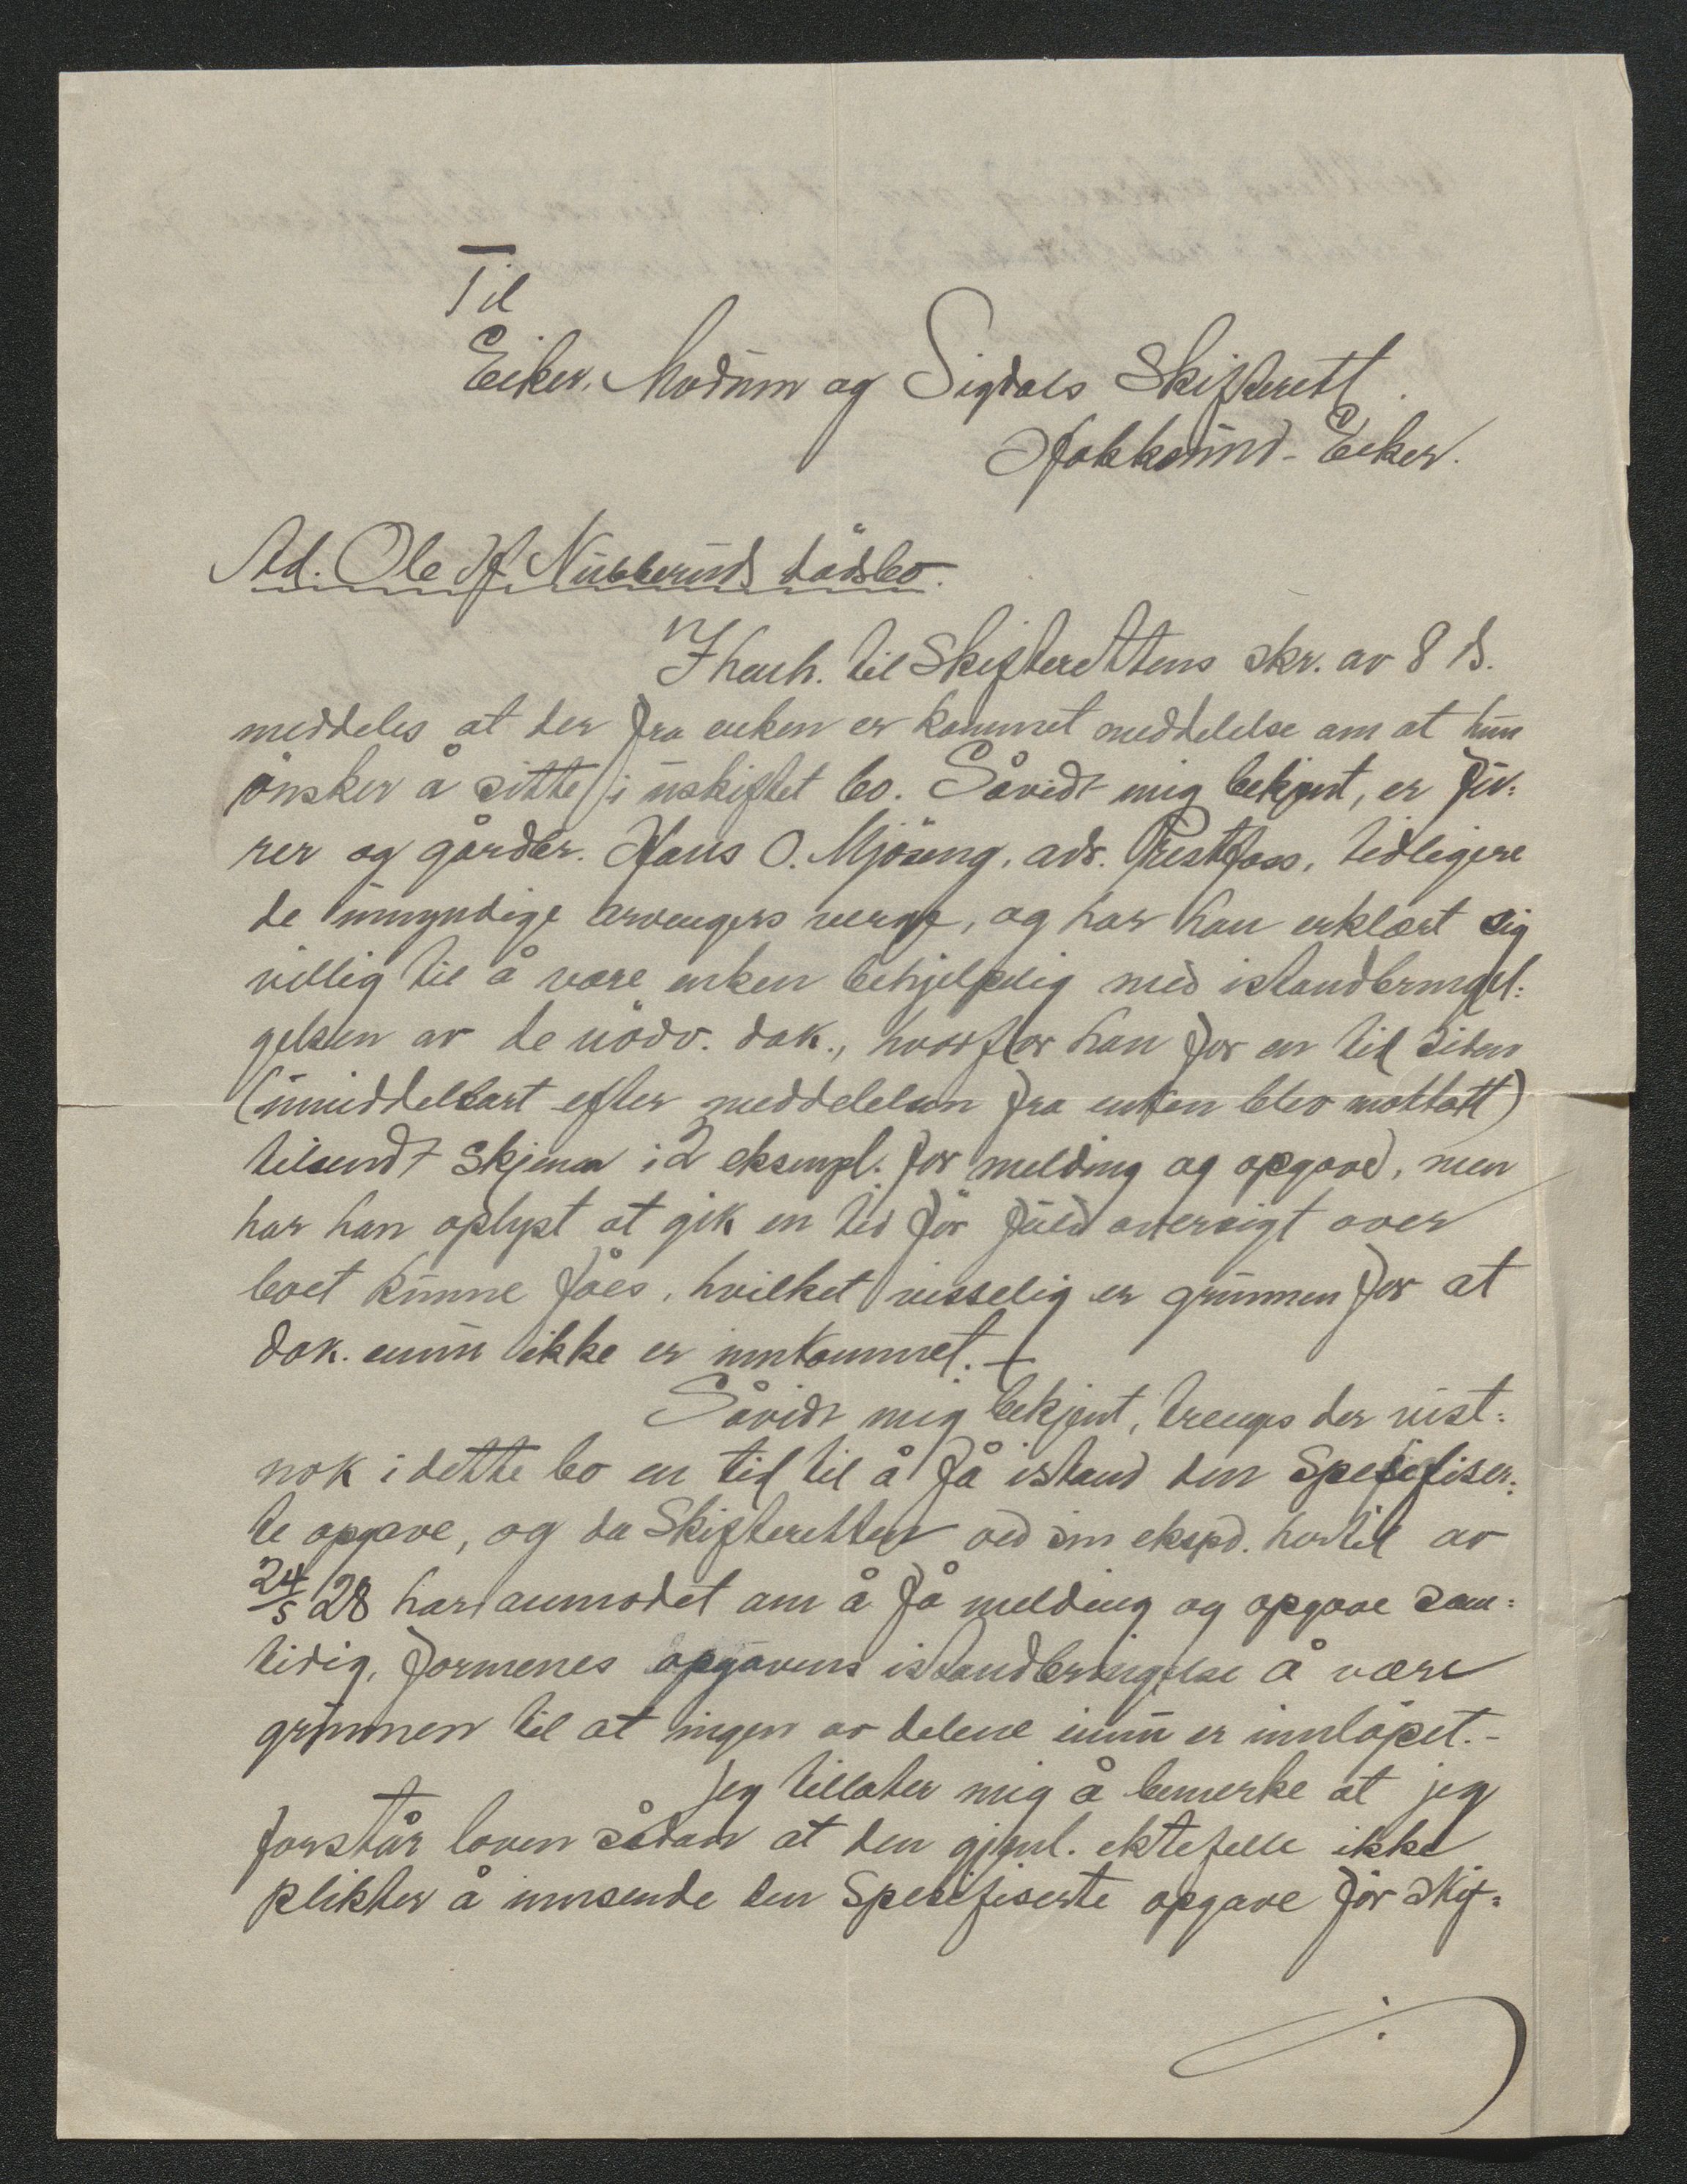 Til
Eiker, Modum og Sigdals Skifterett.
Hokksund - Eiker.
Ad. Ole H. Nubberuds dødsbo.
I henh. til Skifterettens skr. av 8 ds.
meddeles at der fra enken er kommet meddelelse om at hun
ønsker å sitte i uskiftet bo. Såvidt mig bekjent, er
rer og gårdbr. Hans O. Mjøseng, adr. Prestfoss, tidligere
de umyndige arvengers verge, og har han erklært sig
villig til å være enken behjelpelig med istandbringel:
gelsen av de nødv. dok., hvorfor han for en tid siden
(umiddelbart efter meddelelsen fra enken blev mottatt)
tilsendt skjema i 2 eksempl. for melding og opgave, men
har han oplyst at gik en tid før fuld oversigt over
boet kunne fåes, hvilket visselig er grunnen for at
dok. ennu ikke er innkommet. -
Såvidt mig bekjent, trenges der vist:
nok i dette bo en tid til å få istand den spesifiser:
te opgave, og da Skifteretten ved sin ekspd. hertil av
24/5 28 har anmodet om å få melding og opgave sam:
tidig, formenes opgavens istandbringelse å være
grunnen til at ingen av delene ennu er innløpet. -
Jeg tillater mig å bemerke at jeg
forstår loven sådan at den gjenl. ektefelle ikke
plikter å innsende den spesifiserte opgave før skif: